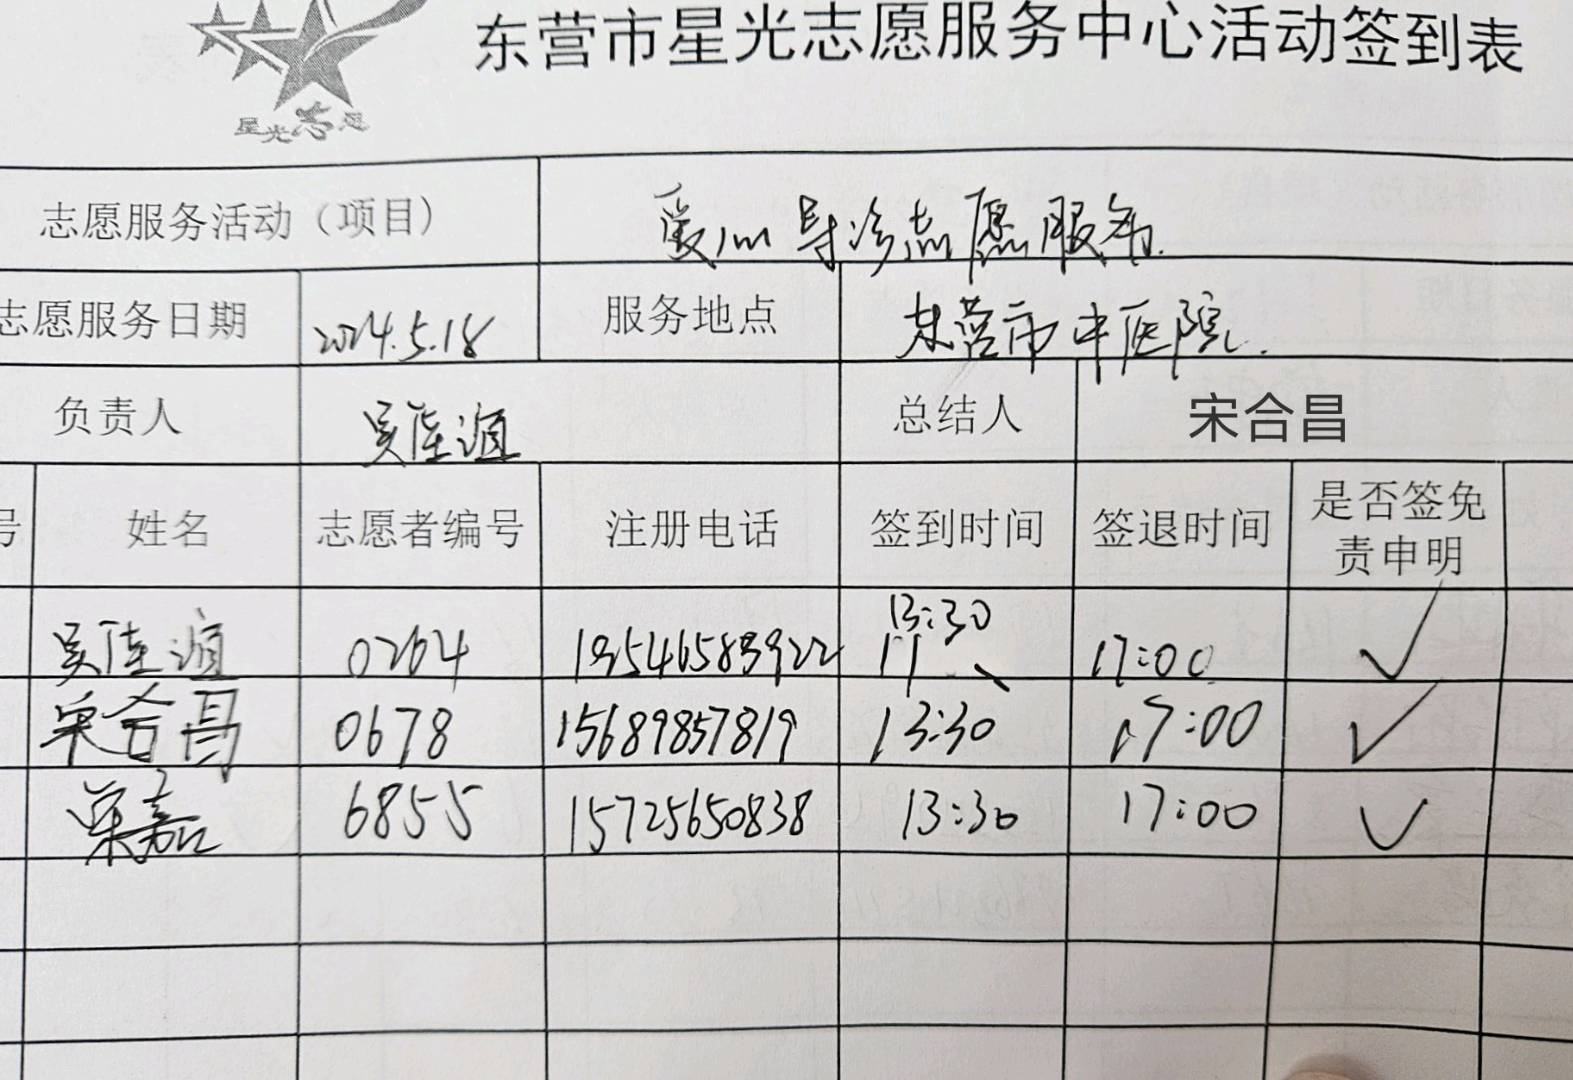 东营市星光志愿服务中心活动签到表
星光志愿
志愿服务活动（项目） 爱心导诊志愿服务.
志愿服务日期 2024.5.18 服务地点 东营市中医院.
负责人 总结人 宋合昌
号 姓名 志愿者编号 注册电话 签到时间 签退时间 是否签免
责申明
0264 13:30 17:00 ✓
宋合昌 0678 15689857819 13:30 17:00 ✓
荣嘉 6855 15725650838 13:30 17:00 ✓